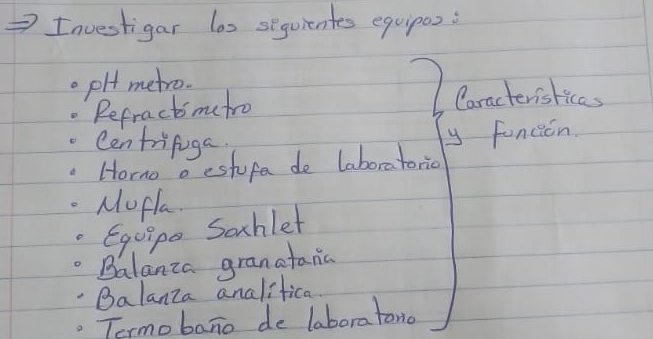 ⇒ Investigar los siguientes equipos:
• pH metro.
• Refractómetro
• Centrifuga.
• Horno o estufa de laboratorio
• Mufla.
• Equipo Soxhlet
• Balanza granataria
• Balanza analítica.
• Termobaño de laboratorio
Características
y función.